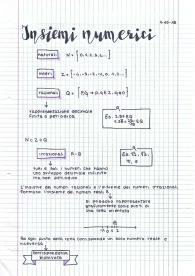 Insiemi numerici
naturali N = {0,1,2,3,...}
interi Z = {...-3,-2,-1,0,1,2...}
razionali Q =
rappresentazione decimale
finita o periodica
N ⊂ Z ⊂ Q
irrazionali R-Q
tutti i numeri che hanno
uno sviluppo decimale infinito
ma non periodico
L'insieme dei numeri razionali e l'insieme dei numeri irrazionali
formano l'insieme dei numeri reali R
Si possono rappresentare
graficamente come punti di
una retta orientata
Ad ogni punto della retta corrisponde un solo numero reale e
viceversa